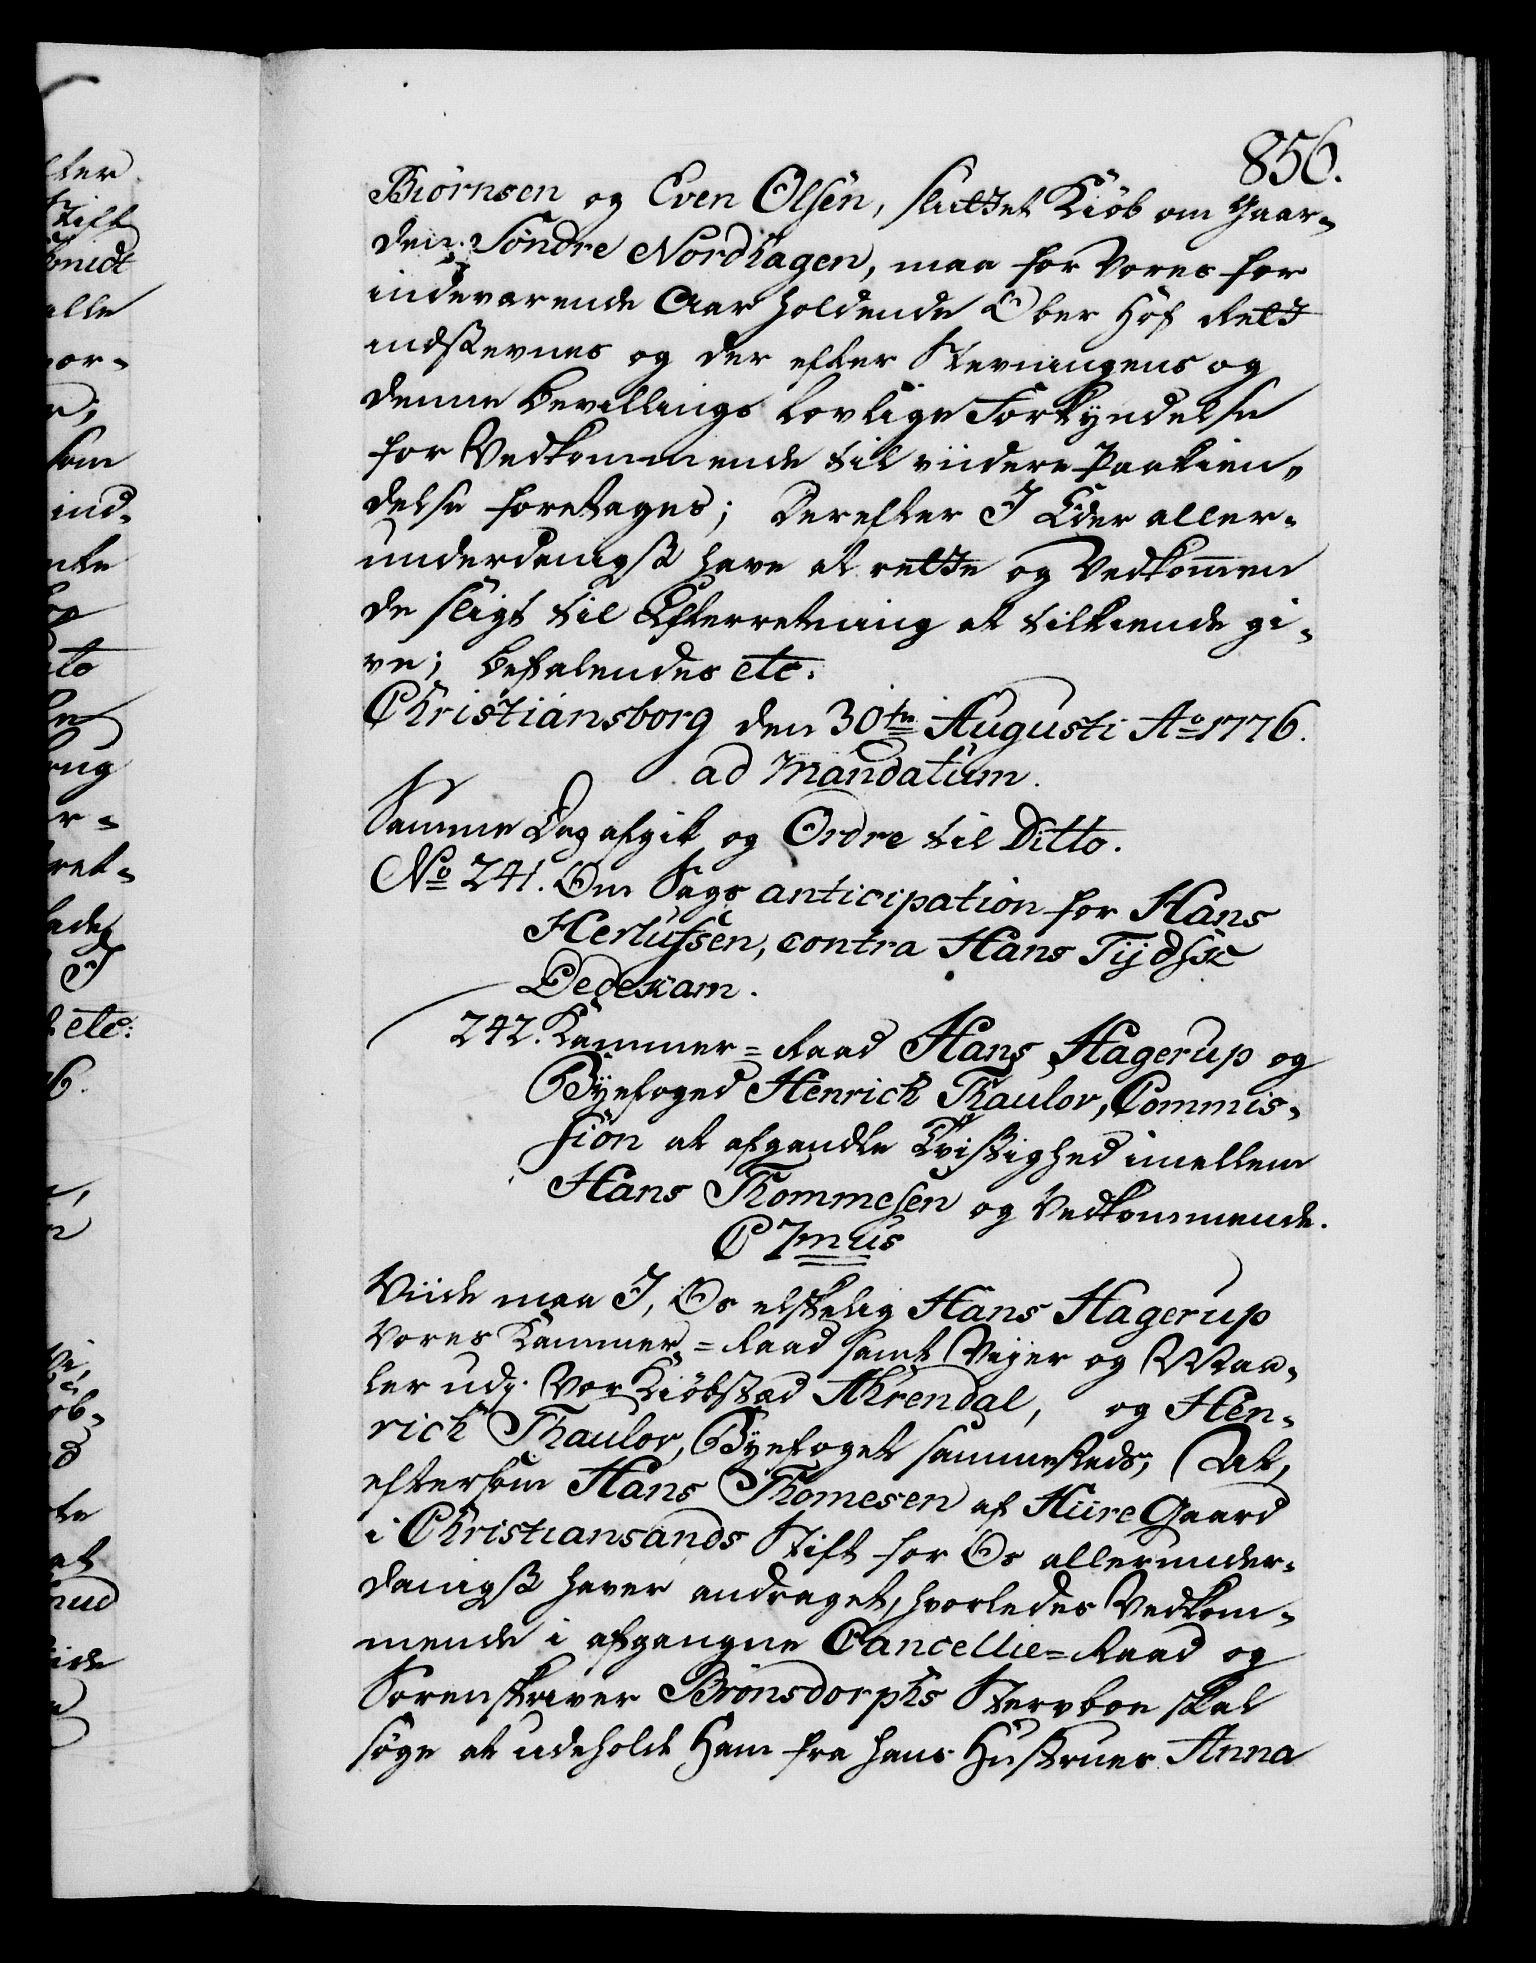 856.
Biörnsen og Even Olsen, sluttet Kiöb om Gaar-
den Söndre Nordhagen, maa for Vores for
indeværende Aar holdende Ober Hof Rett
indstevnes og der efter Stevningens og
denne Bevillings lovlige Forkyndelse
for Vedkommende til viidere Paakien-
delse foretages; Derefter I Eder aller-
underdanigst have at rette og Vedkommen
de sligt til Efterretning at tilkiende gi-
ve; Befalendes etc:
Christiansborg den 30te Augusti Ao 1776.
ad Mandatum.
Samme Dag afgik og Ordre til Ditto.
No 241. Om Sags anticipation for Hans
Herlufsen, contra Hans Tijdsk
Dedekam.
242. Kammer-Raad Hans Hagerup og
Byefoged Henrich Thaulov, Commis-
sion at afhandle Tvistighed imellem
Hans Thommesen og Vedkommende.
C 7mus
Viide maa I, Os elskelig Hans Hagerup
Vores Kammer-Raad samt Vejer og Maa-
ler udj Vor Kiöbstæd Ahrendal, og Hen-
rich Thaulov, Byefoget sammesteds; At,
eftersom Hans Thomesen af Hiire Gaard
i Christiansands Stift for Os allerunder-
danigst haver andraget, hvorledes Vedkom-
mende i afgangne Cancellie-Raad og
Sorenskriver Brönsdorphs Stervboe skal
söge at udeholde Ham fra hans Hustrues Anna